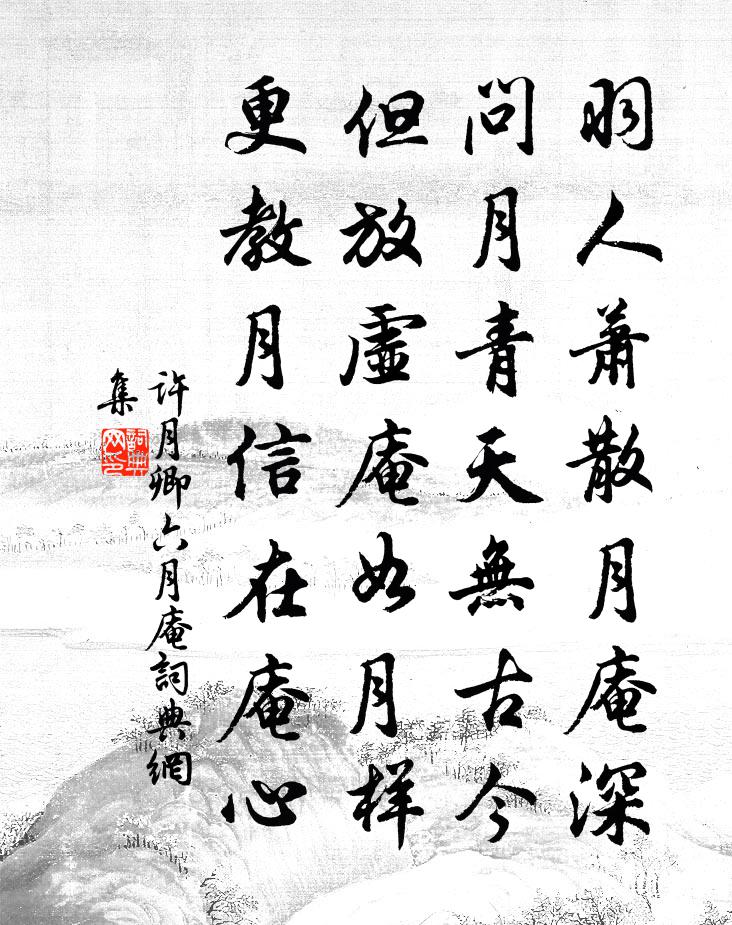 羽人萧散月庵深
问月青天無古今
但放虛庵如月样
更教月信在庵心
許月卿六月庵詞典網
集
詞典网印